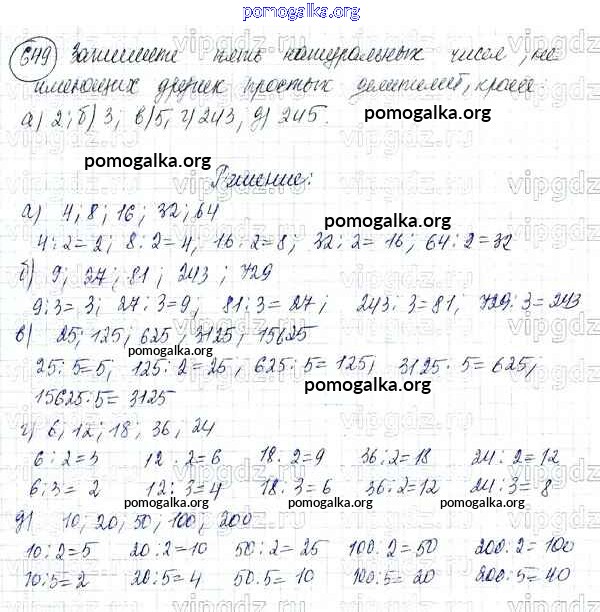 pomogalka.org
649 Запишите пять натуральных чисел, не
имеющих других простых делителей, кроме:
а) 2; б) 3; в) 5; г) 243; д) 245.
pomogalka.org
pomogalka.org
Решение:
а) 4; 8; 16; 32; 64
pomogalka.org
4:2=2; 8:2=4; 16:2=8; 32:2=16; 64:2=32
б) 9; 27; 81; 243; 729
9:3=3; 27:3=9; 81:3=27; 243:3=81; 729:3=243
в) 25; 125; 625; 3125; 15625
pomogalka.org
25:5=5; 125:2=25, 625:5=125; 3125:5=625;
pomogalka.org
15625:5=3125
г) 6; 12; 18; 36; 24
6:2=3 12:2=6 18:2=9 36:2=18 24:2=12
6:3=2 12:3=4 18:3=6 36:2=12 24:3=8
pomogalka.org pomogalka.org
д) 10; 20; 50; 100; 200
10:2=5 20:2=10 50:2=25 100:2=50 200:2=100
10:5=2 20:5=4 50:5=10 100:5=20 200:5=40